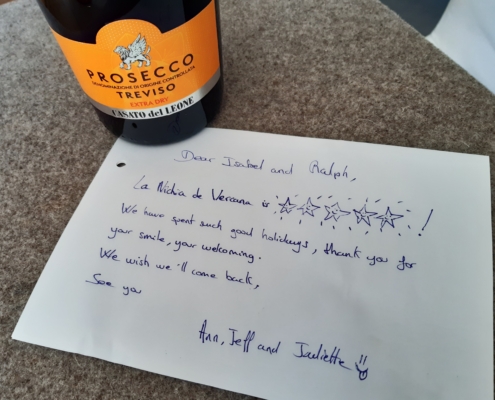 PROSECCO
DENOMINAZIONE DI ORIGINE CONTROLLATA
TREVISO
EXTRA DRY
CASATO del LEONE
Dear Isabel and Ralph,
La Nichia de Vercana is ☆☆☆☆☆!
We have spent such good holidays, thank you for
your smile, your welcoming.
We wish we'll come back,
See you
Ann, Jeff and Juliette